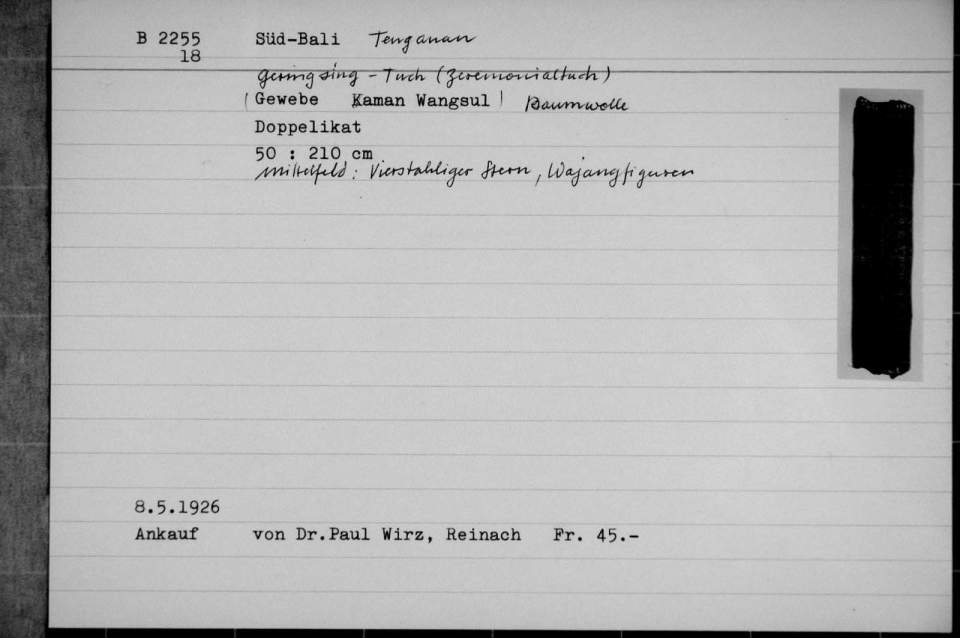 B 2255 Süd-Bali Tenganan
18
geringsing - Tuch (Zeremonialtuch)
(Gewebe Kaman Wangsul) Baumwolle
Doppelikat
50 : 210 cm
Mittelfeld: Vierstahliger Stern, Wajangfiguren
8.5.1926
Ankauf von Dr.Paul Wirz, Reinach Fr. 45.-